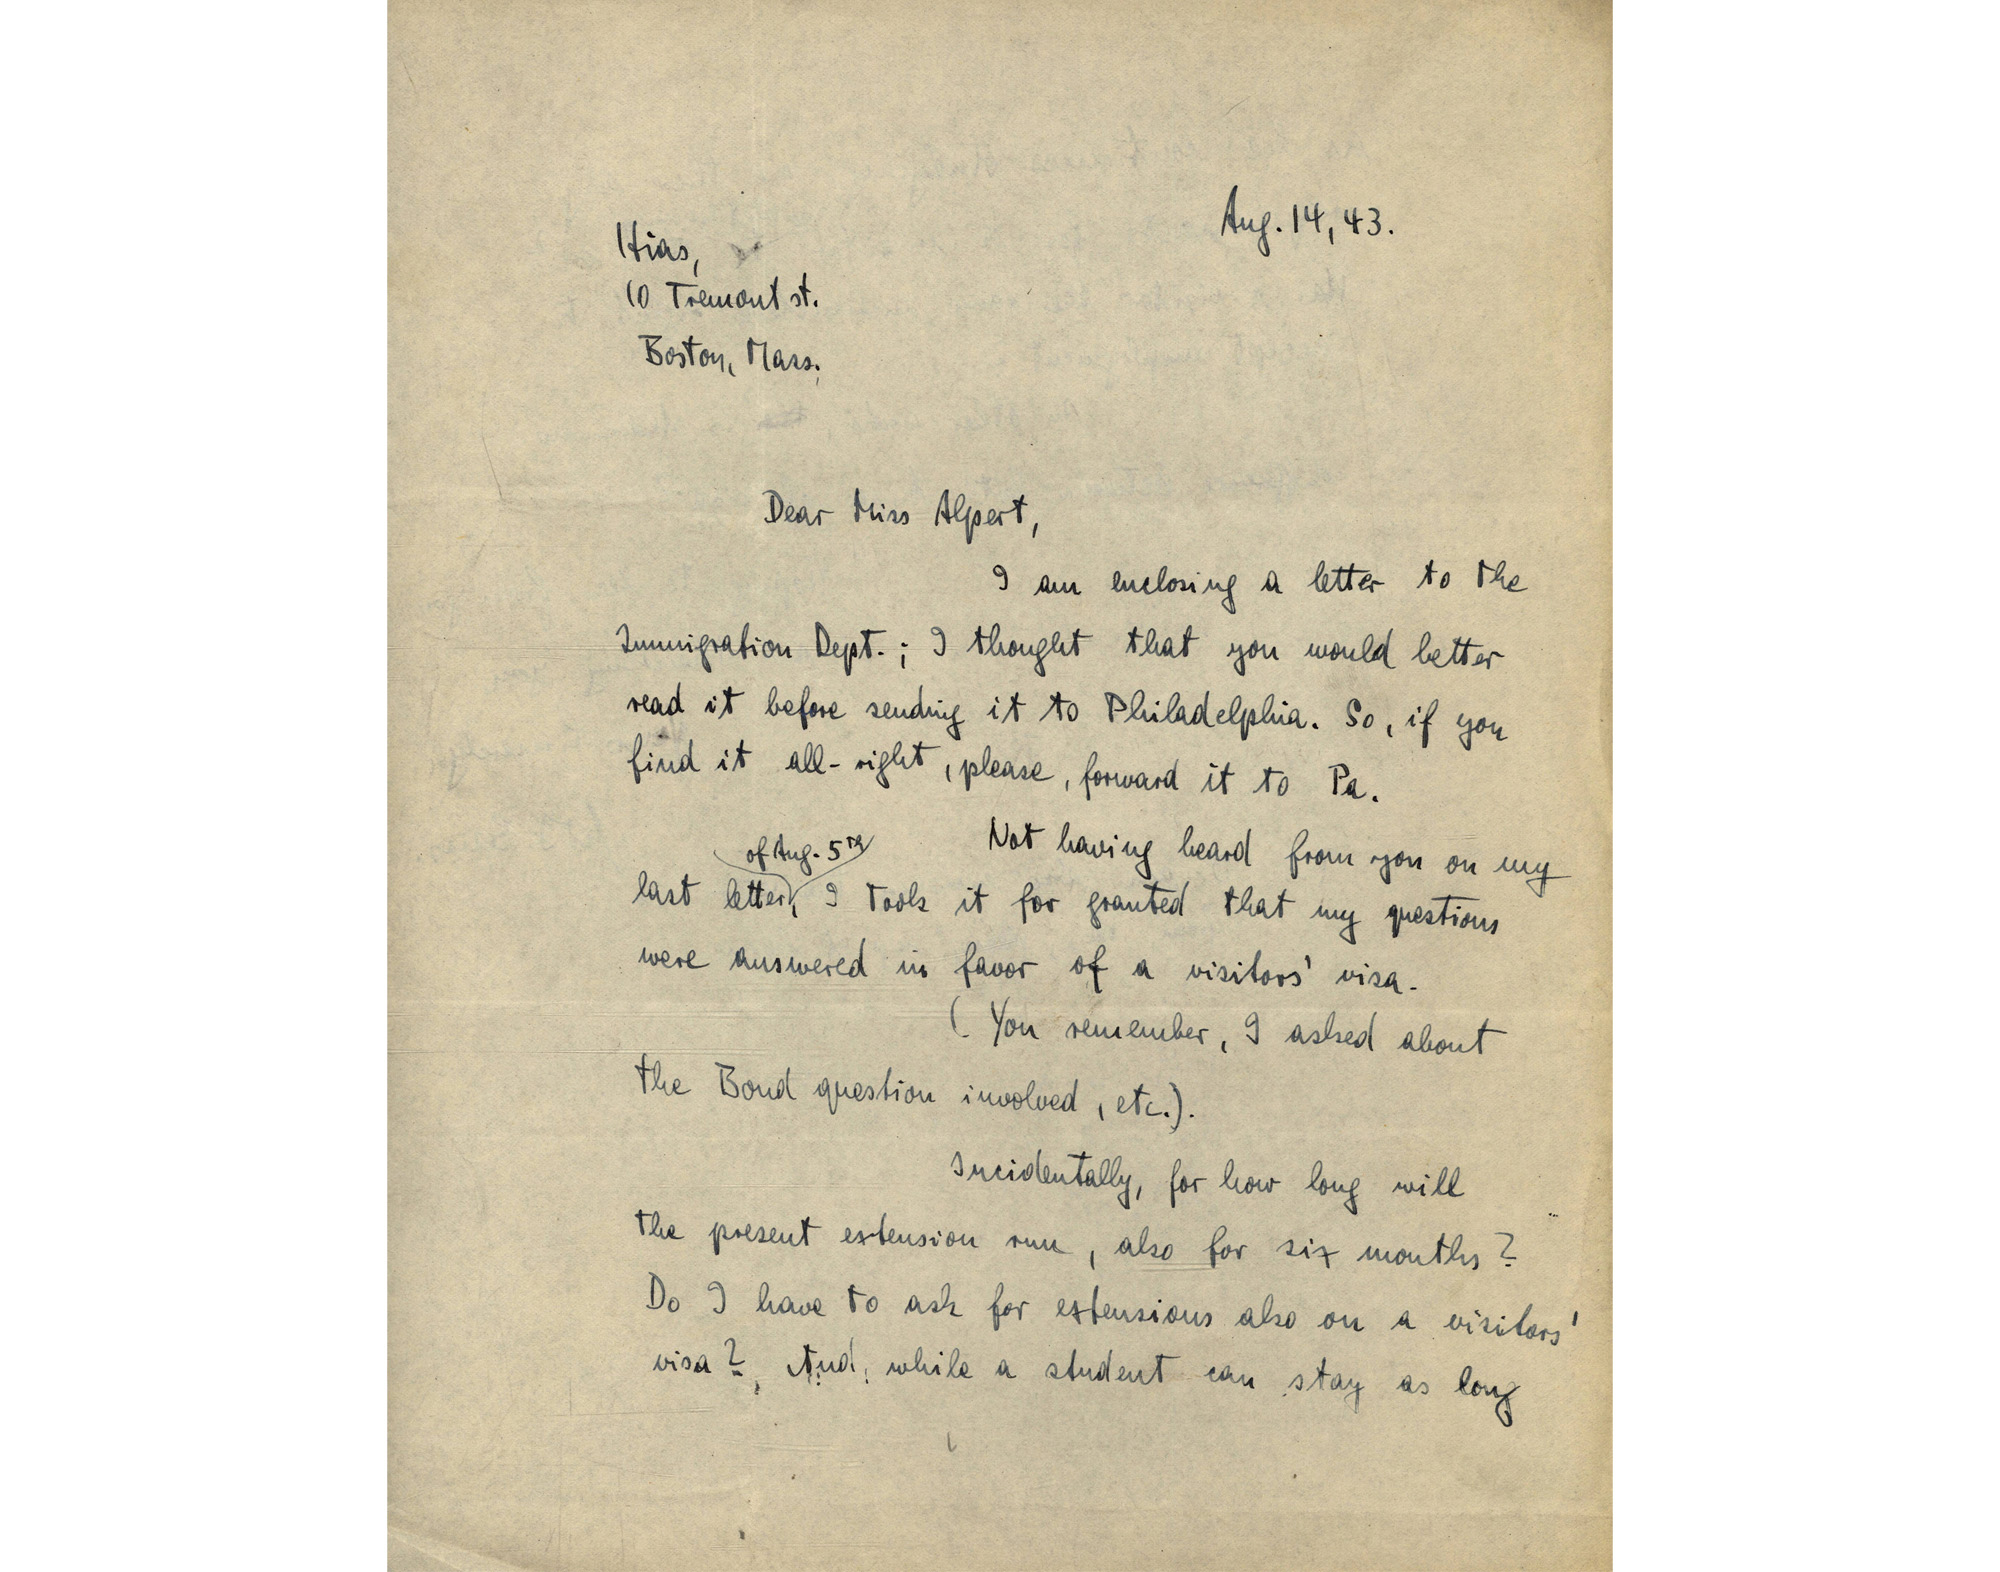 Aug. 14, 43.
Hias,
10 Tremont st.
Boston, Mass.
Dear Miss Alpert,
I am enclosing a letter to the
Immigration Dept. ; I thought that you would better
read it before sending it to Philadelphia. So, if you
find it all-right, please, forward it to Pa.
Not having heard from you on my
of Aug. 5th
last letter, I took it for granted that my questions
were answered in favor of a visitors' visa.
( You remember, I asked about
the Bond question involved, etc.).
Incidentally, for how long will
the present extension run, also for six months?
Do I have to ask for extensions also on a visitors'
visa? And, while a student can stay as long